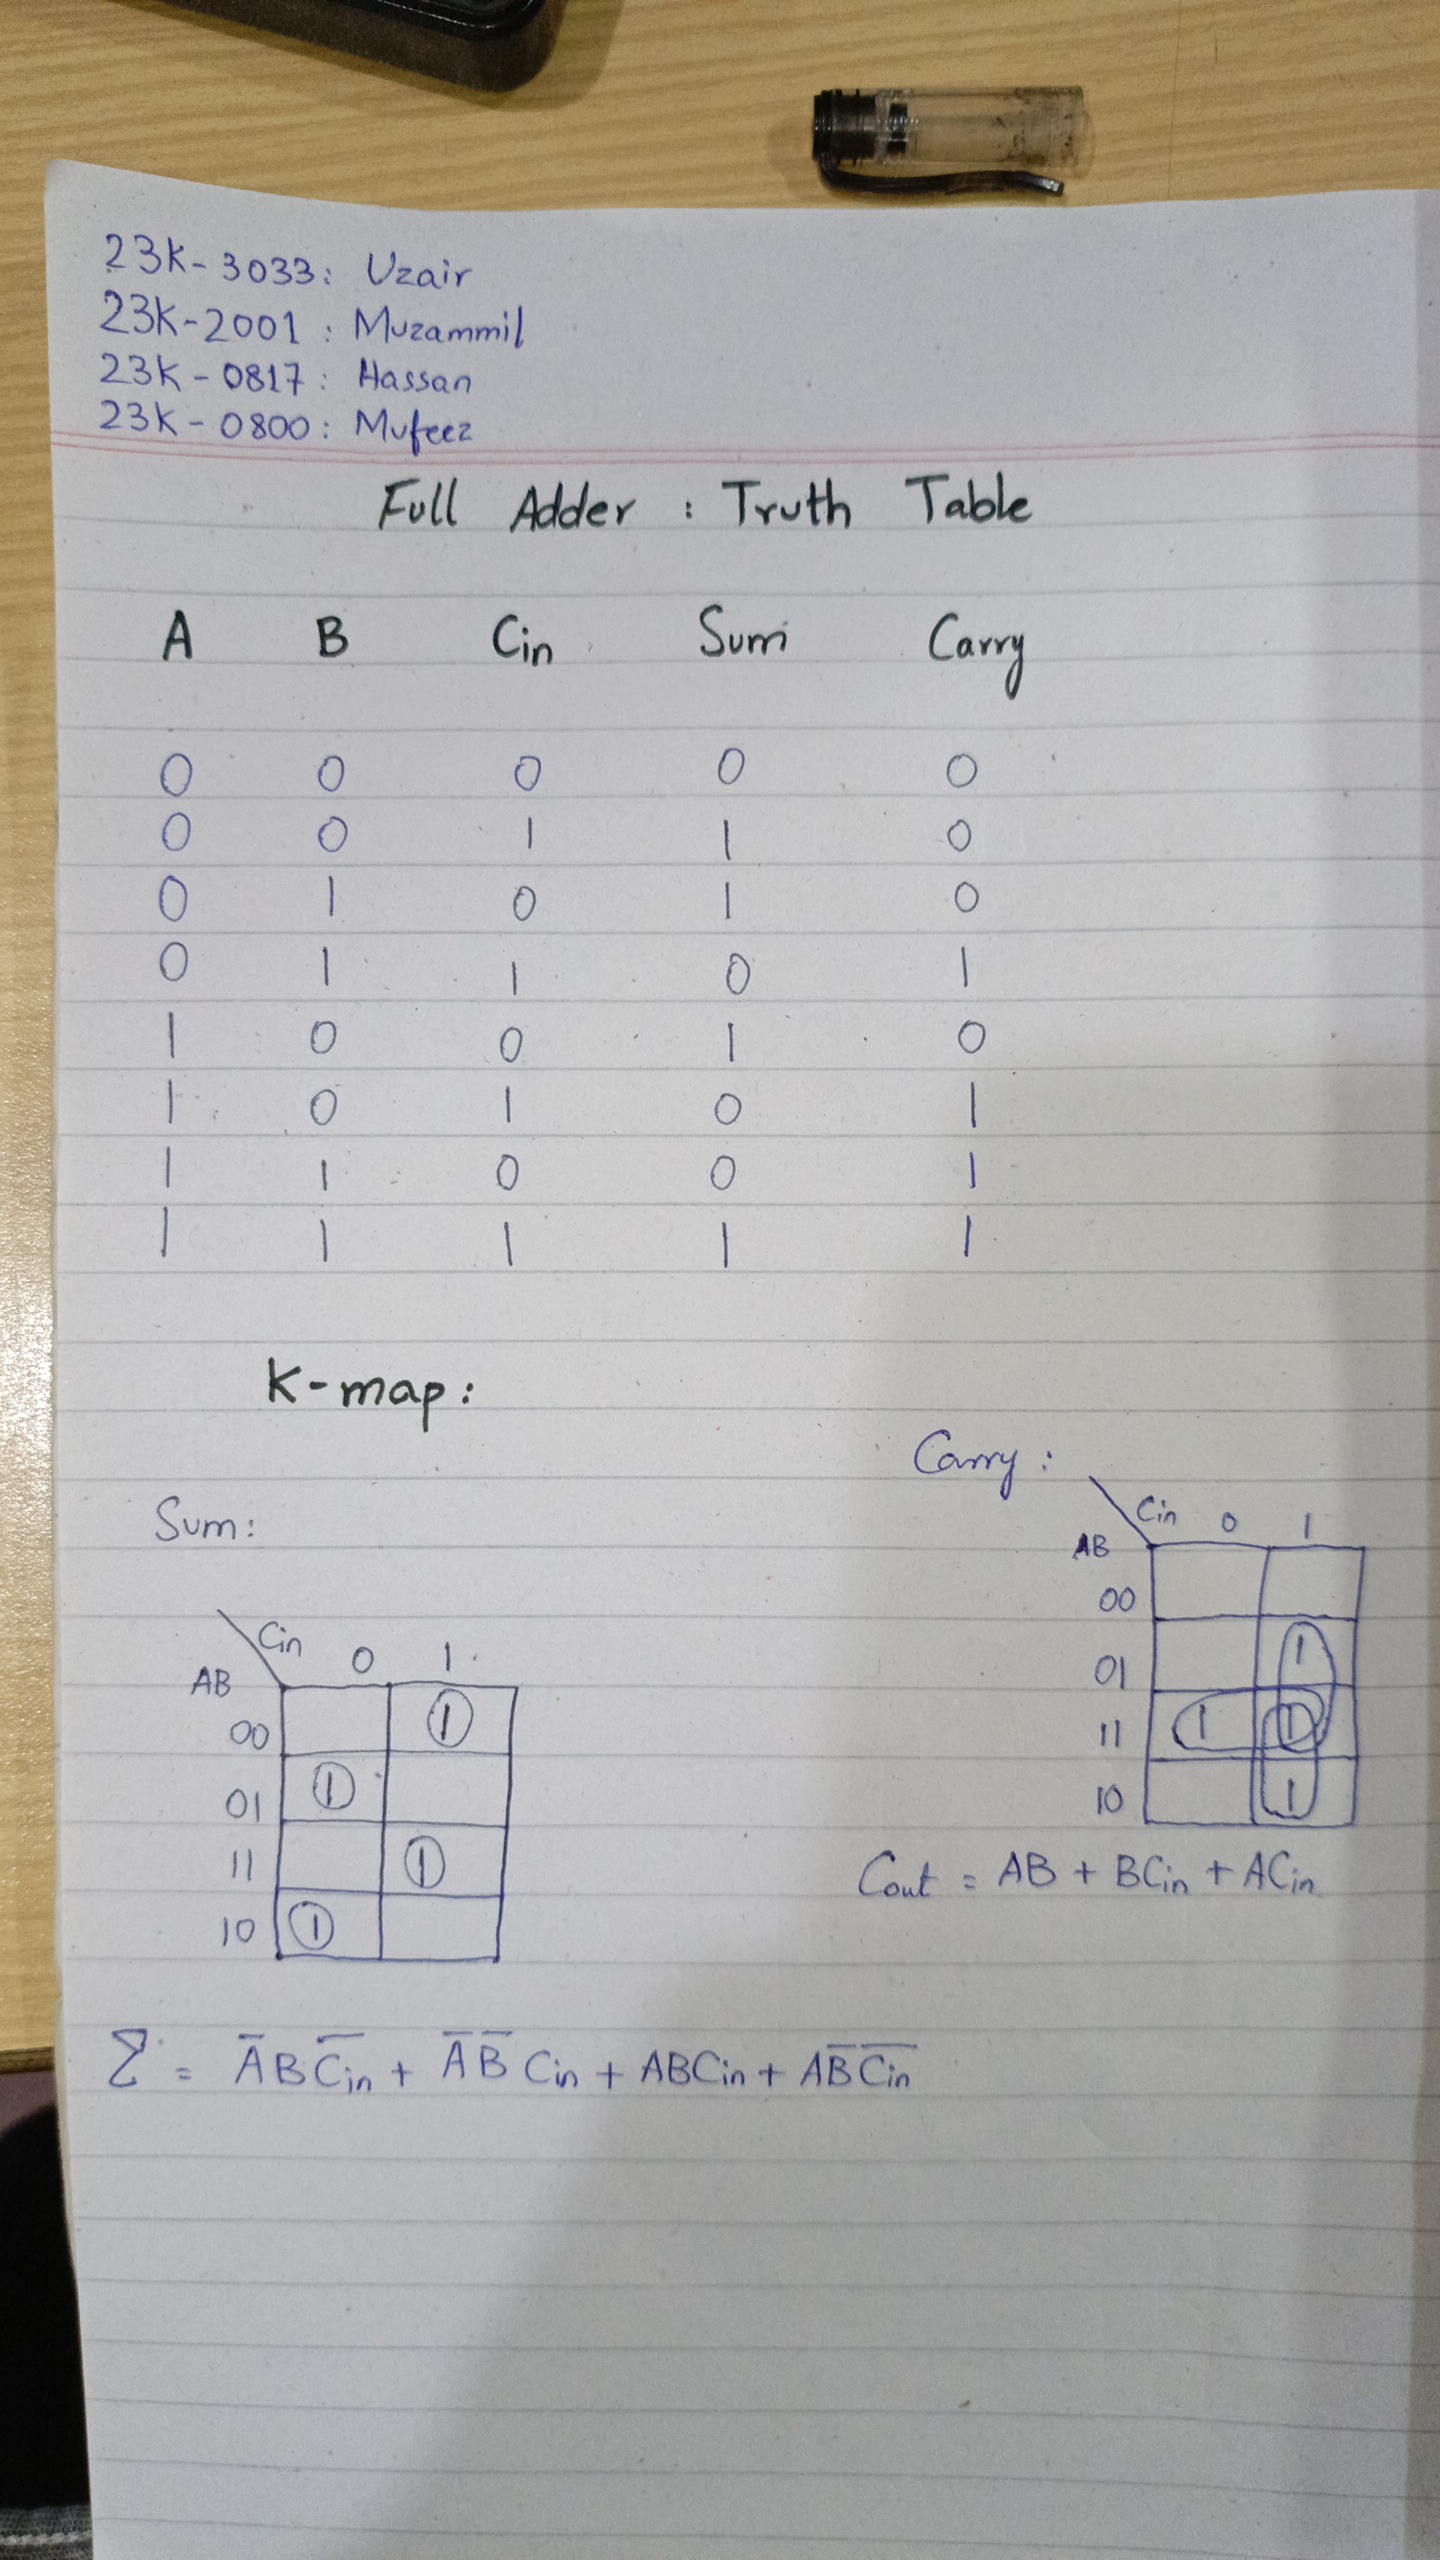 23K-3033: Uzair
23K-2001: Muzammil
23K-0817: Hassan
23K-0800: Mufeez
Full Adder : Truth Table
A B Cin Sum Carry
0 0 0 0 0
0 0 1 1 0
0 1 0 1 0
0 1 1 0 1
1 0 0 1 0
1 0 1 0 1
1 1 0 0 1
1 1 1 1 1
K-map:
Sum:
Cin 0 1
AB
00 1
01 1
11 1
10 1
Carry:
Cin 0 1
AB
00
01 1
11 1 1
10 1
Cout = AB + BCin + ACin
Σ = A̅BC̅i̅n̅ + A̅B̅Cin + ABCin + AB̅C̅i̅n̅